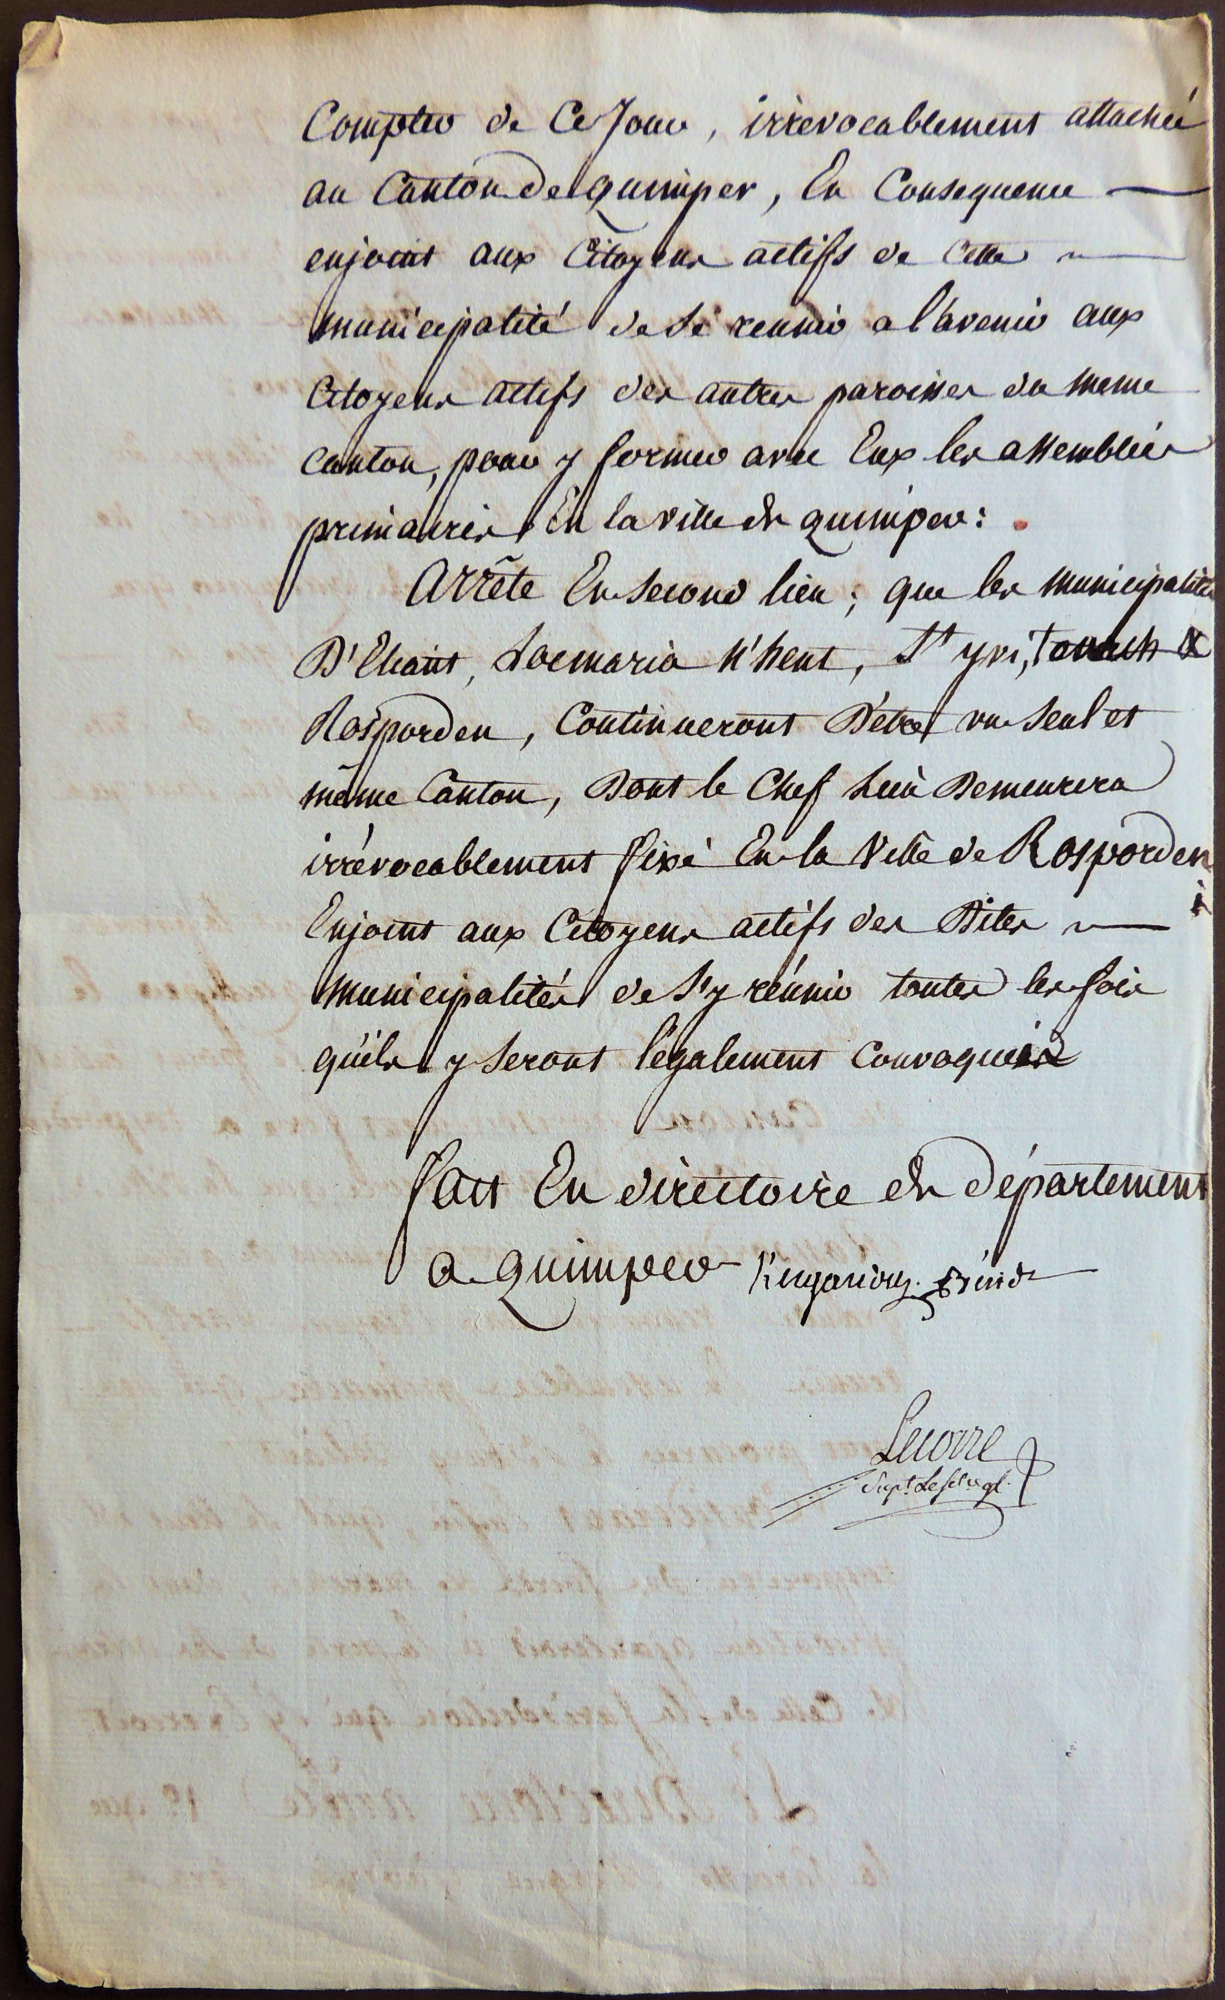 Compter de Ce Jour, irrévocablement attachée
au Canton de Quimper, En Consequence
enjoint aux Citoyens actifs de Cette
municipalité de Se reunir a l'avenir aux
Citoyens actifs des autres paroisses du meme
Canton, pour y former avec Eux les assemblées
primaires En la ville de quimper:
Arrête En Second lieu; que les municipalités
D'Eliant, Locmaria h'hent, St yvi, tourch &
Rosporden, Continueront D'etre un Seul et
même Canton, Dont le Chef Lieu Demeurera
irrévocablement fixé En la Ville de Rosporden
Enjoint aux Citoyens actifs des Dites
municipalités de S'y réunir toutes les fois
qu'ils y Seront légalement Convoqués
fait En directoire du département
a quimper Kergariou. Président
Lecorre
Supt. Le secre. gl.